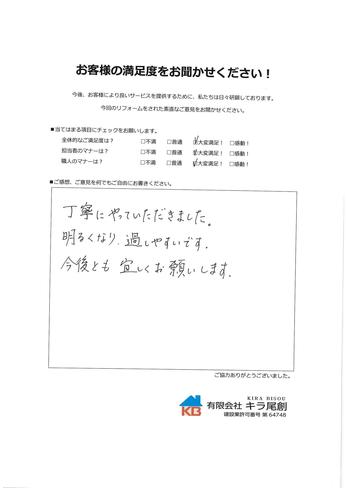 お客様の満足度をお聞かせください！
今後、お客様により良いサービスを提供するために、私たちは日々研鑽しております。
今回のリフォームをされた素直なご意見をお聞かせください。
■当てはまる項目にチェックをお願いします。
全体的なご満足度は？ □不満 □普通 ☑大変満足！ □感動！
担当者のマナーは？ □不満 □普通 ☑大変満足！ □感動！
職人のマナーは？ □不満 □普通 ☑大変満足！ □感動！
■ご感想、ご意見を何でもご自由にお書きください。
丁寧にやっていただきました。
明るくなり、過しやすいです。
今後とも宜しくお願いします。
ご協力ありがとうございました。
KIRA BISOU
KB 有限会社 キラ尾創
建設業許可番号 第64748